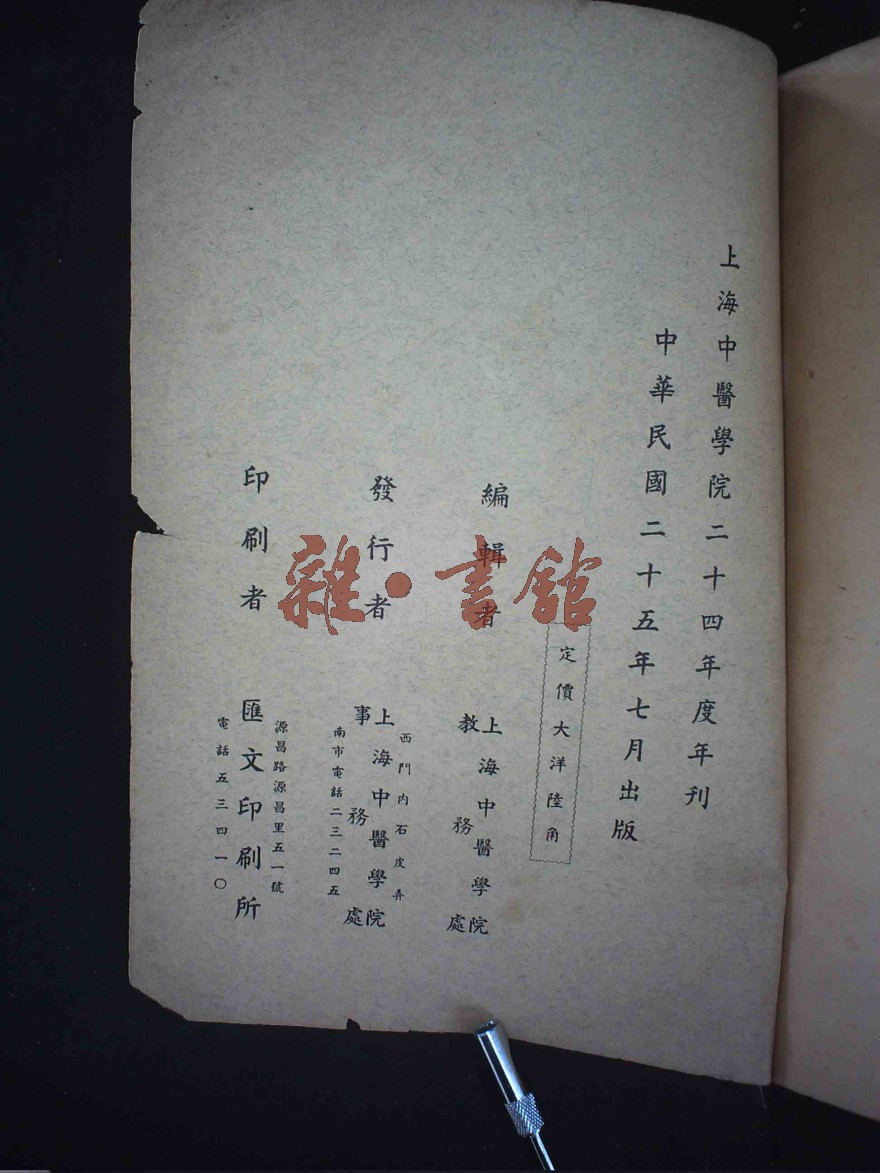 上海中醫學院二十四年度年刊
中華民國二十五年七月出版
定價大洋陸角
編輯者
上海中醫學院
教務處
發行者
西門內石皮弄
上海中醫學院
事務處
南市電話二三二四五
印刷者
源昌路源昌里五一號
匯文印刷所
電話五三四一〇
雜·書館